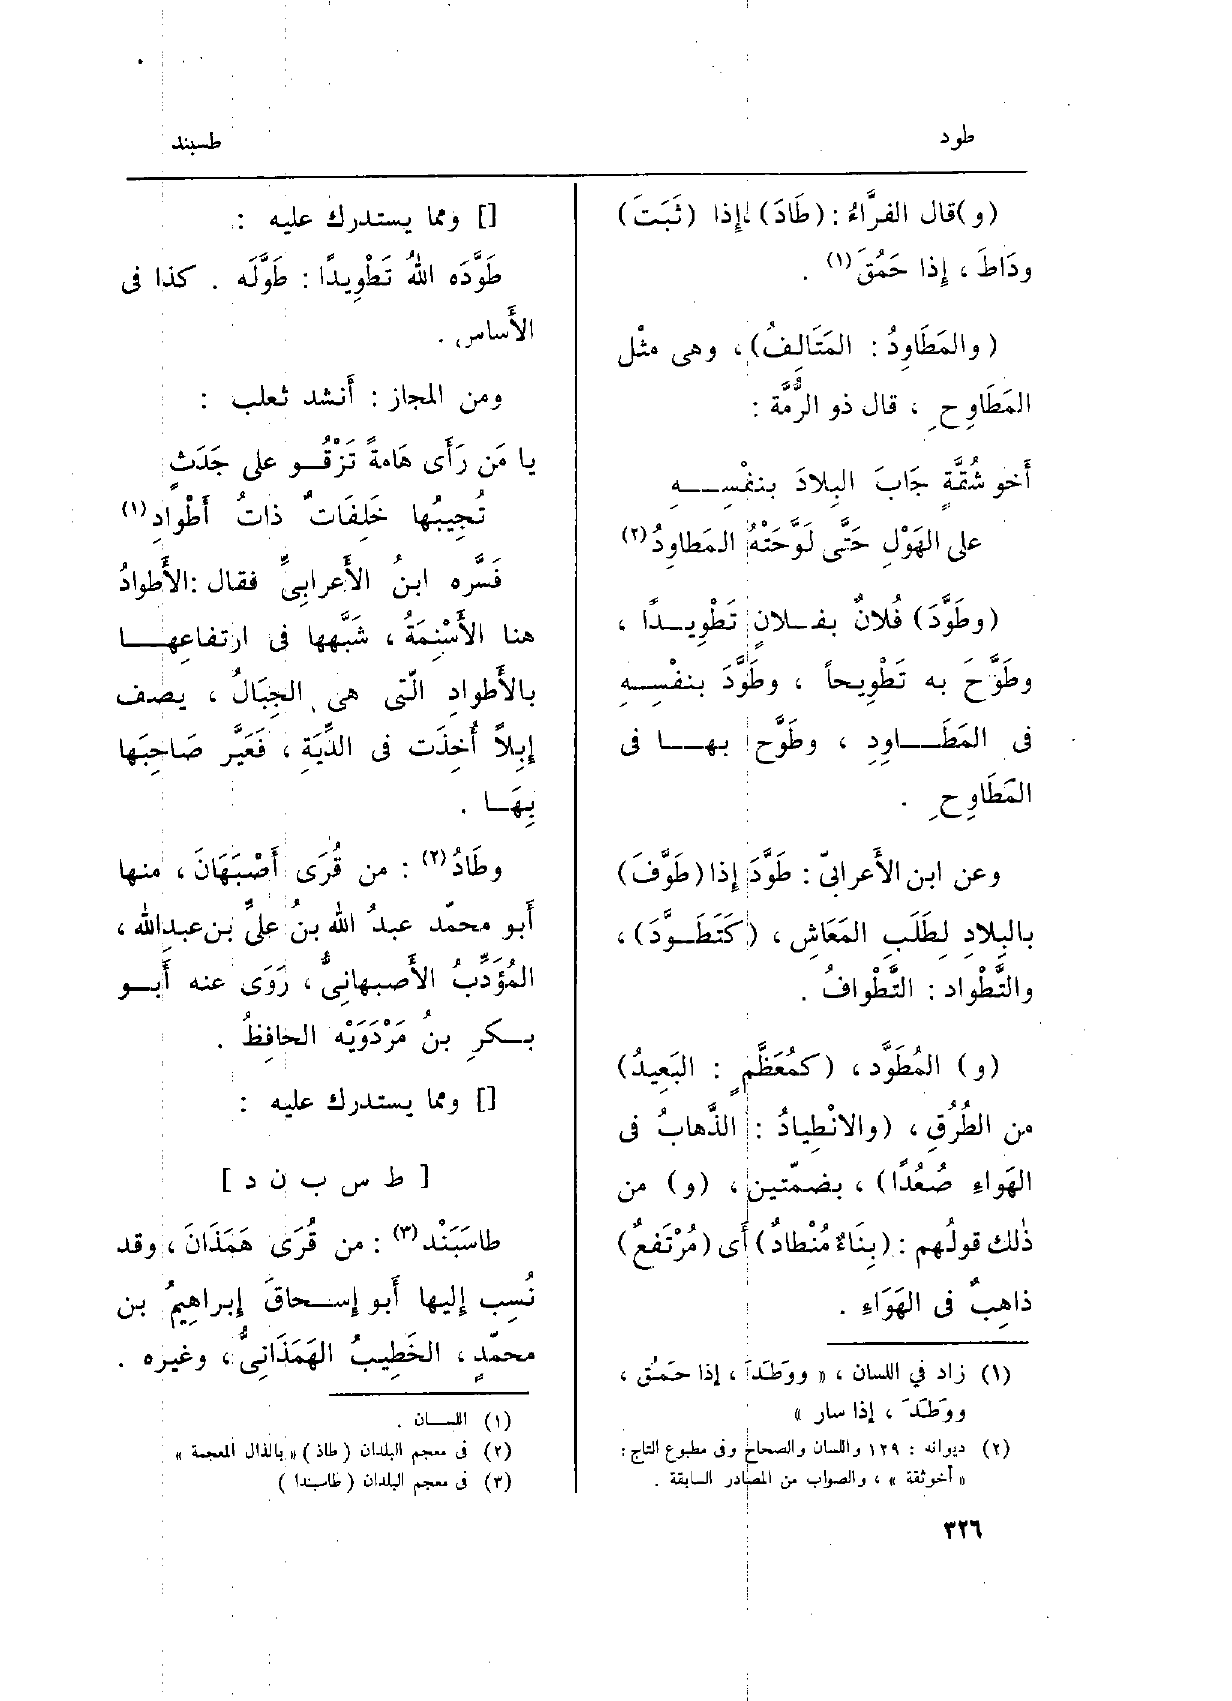 طود
طسبند
(و) قال الفَرَّاءُ : (طَادَ) إذا (ثَبَتَ)
ودَاطَ ، إذا حَمُقَ (١) .
(والمَطَاوِدُ : المَتَالِفُ) ، وهى مثْل
المَطَاوِحِ ، قال ذو الرُّمَّة :
أَخو شُقَّةٍ جَابَ البِلادَ بنفْسِــهِ
على الهَوْلِ حَتَّى لَوَّحَتْهُ المَطاوِدُ (٢)
(وطَوَّدَ) فُلانٌ بفــلانٍ تَطْوِيــدًا ،
وطَوَّحَ به تَطْوِيحاً ، وطَوَّدَ بنفْسِــهِ
فى المَطَــاوِدِ ، وطَوَّح بهــا فى
المَطَاوِحِ .
وعن ابن الأَعرابىّ : طَوَّدَ إذا (طَوَّفَ)
بالبِلادِ لِطَلَبِ المَعَاشِ ، (كَتَطَــوَّدَ) ،
والتَّطْواد : التَّطْوافُ .
(و) المُطَوَّد ، (كمُعَظَّمٍ : البَعِيدُ)
من الطُرُقِ ، (والانْطِيادُ : الذَّهابُ فى
الهَواءِ صُعُدًا) ، بضمّتين ، (و) من
ذٰلك قولُهم : (بِنَاءٌ مُنْطادٌ) أَى (مُرْتَفعٌ)
ذاهِبٌ فى الهَوَاءِ .
(١) زاد في اللسان ، « ووَطَدَ ، إذا حَمُق ،
ووَطَدَ ، إذا سار »
(٢) ديوانه : ١٢٩ واللسان والصحاح وفى مطبوع التاج :
« أخوثقة » ، والصواب من المصادر السابقة .
٣٢٦
[] ومما يستدرك عليه :
طَوَّدَه اللهُ تَطْوِيدًا : طَوَّلَه . كذا فى
الأَساس .
ومن المجاز : أَنشد ثعلب :
يا مَن رَأَى هَامةً تَزْقُــو على جَدَثٍ
تُجِيبُها خَلِفَاتٌ ذاتُ أَطْوادِ (١)
فَسَّره ابنُ الأَعرابىِّ فقال : الأَطوادُ
هنا الأَسْنِمَةُ ، شَبَّهها فى ارتفاعِهــا
بالأَطوادِ الّتى هى الجِبَالُ ، يصف
إبِلاً أُخِذَت فى الدِّيَةِ ، فَعَيَّر صَاحِبَها
بِهَــا .
وطَادُ (٢) : من قُرَى أَصْبَهَانَ ، منها
أَبو محمّد عبدُ الله بنُ علىِّ بن عبدالله ،
المُؤَدِّبُ الأَصبهانىُّ ، رَوَى عنه أَبــو
بــكرِ بنُ مَرْدَوَيْه الحافِظُ .
[] ومما يستدرك عليه :
[ ط س ب ن د ]
طاسَبَنْد (٣) : من قُرَى هَمَذَانَ ، وقد
نُسِب إليها أَبو إســحاقَ إبراهِيمُ بن
محمّدٍ ، الخَطِيبُ الهَمَذَانىُّ ، وغيره .
(١) اللسان .
(٢) فى معجم البلدان (طاذ) « بالذال المعجمة »
(٣) فى معجم البلدان (طاسبندا)